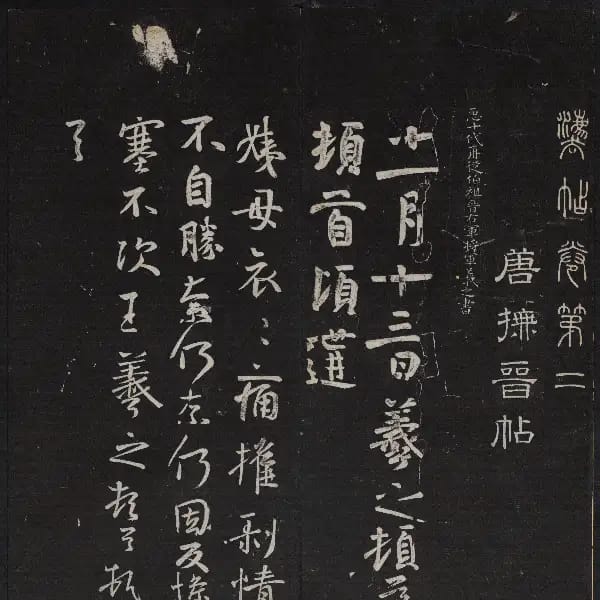 帖卷第二
唐撫晉帖
臣十代再從伯祖晉右軍將軍羲之書
十一月十三日羲之頓首
頓首頃遘
姨母哀〻痛摧剝情
不自勝奈何奈何因反慘
塞不次王羲之頓首頓
首